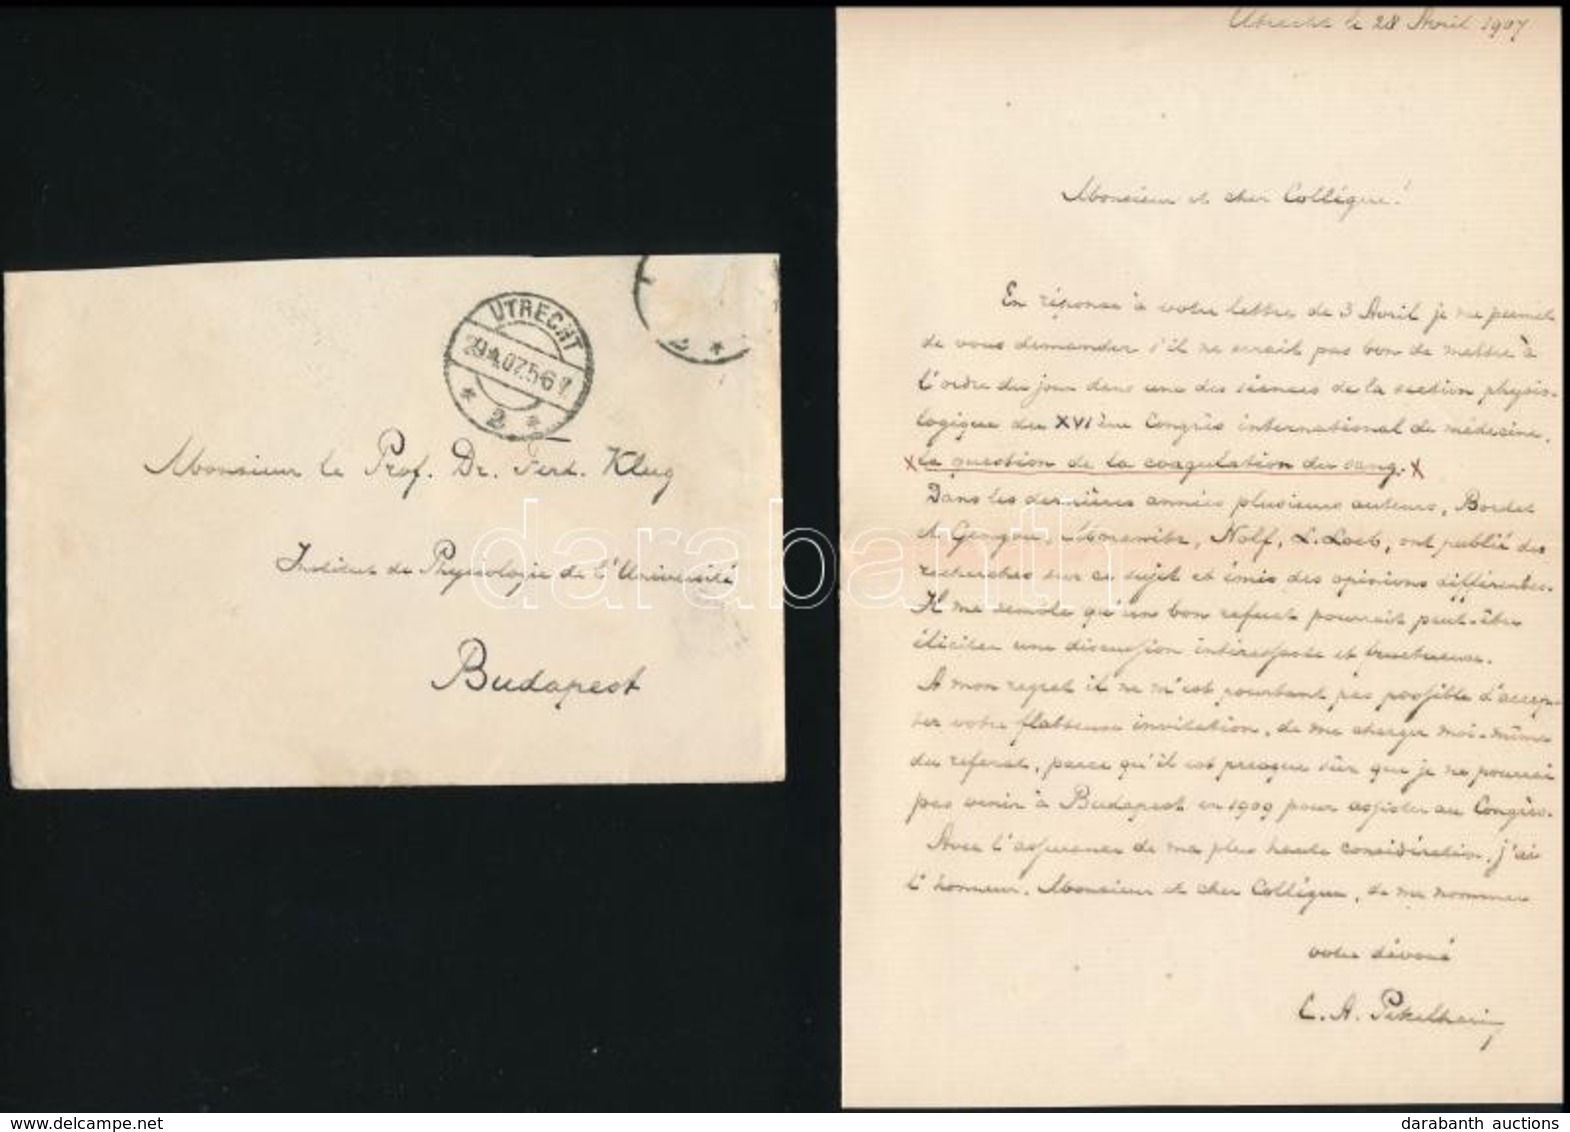 UTRECHT
29.4.07.5-6 V
* 2 *
2 *
Monsieur le Prof. Dr. Ferd. Klug
Institut de Physiologie de l'Université
Budapest
Utrecht le 28 Avril 1907
Monsieur et cher Collègue!
En réponse à votre lettre de 3 Avril je me permet
de vous demander s'il ne serait pas bon de mettre à
l'ordre du jour dans une des séances de la section physio-
logique du XVIème Congrès international de médecine,
x la question de la coagulation du sang. x
Dans les dernières années plusieurs auteurs, Bordet
et Gengou, Morawitz, Nolf, L. Loeb, ont publié des
recherches sur ce sujet et émis des opinions différentes.
Il me semble qu'un bon referat pourrait peut-être
iliciter une discussion intéressante et fructueuse.
A mon regret il ne m'est pourtant pas possible d'accep-
ter votre flatteuse invitation, de me charger moi-même
du referat, parce qu'il est presque sûr que je ne pourrai
pas venir à Budapest en 1909 pour assister au Congrès.
Avec l'assurance de ma plus haute considération, j'ai
l'honneur, Monsieur et cher Collègue, de me nommer
votre dévoué
C. A. Pekelharing
darabanth
darabanth auctions
delcampe.net